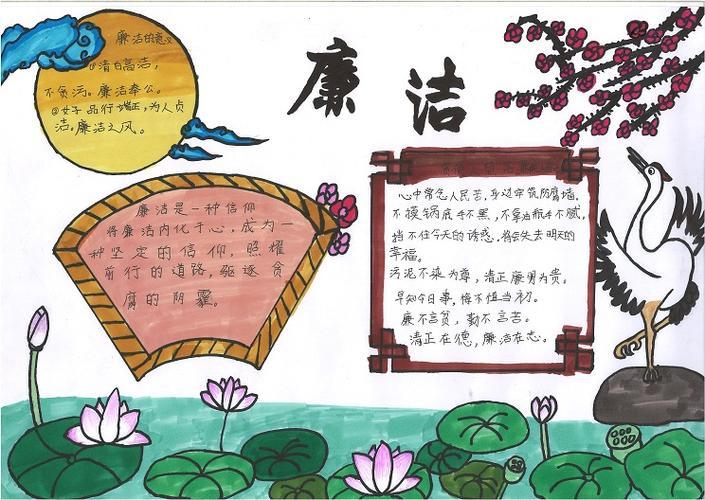 廉洁
廉洁的意义
①清白高洁，
不贪污。廉洁奉公。
②女子品行端正，为人贞
洁。廉洁之风。
廉洁是一种信仰
将廉洁内化于心，成为一
种坚定的信仰，照耀
前行的道路，驱逐贪
腐的阴霾。
心中常念人民苦，身边牢筑防腐墙。
不摸锅底手不黑，不拿油瓶手不腻，
挡不住今天的诱惑，将会失去明天的
幸福。
污泥不染为尊，清正廉明为贵。
早知今日事，悔不慎当初。
廉不言贫，勤不言苦。
清正在德，廉洁在志。